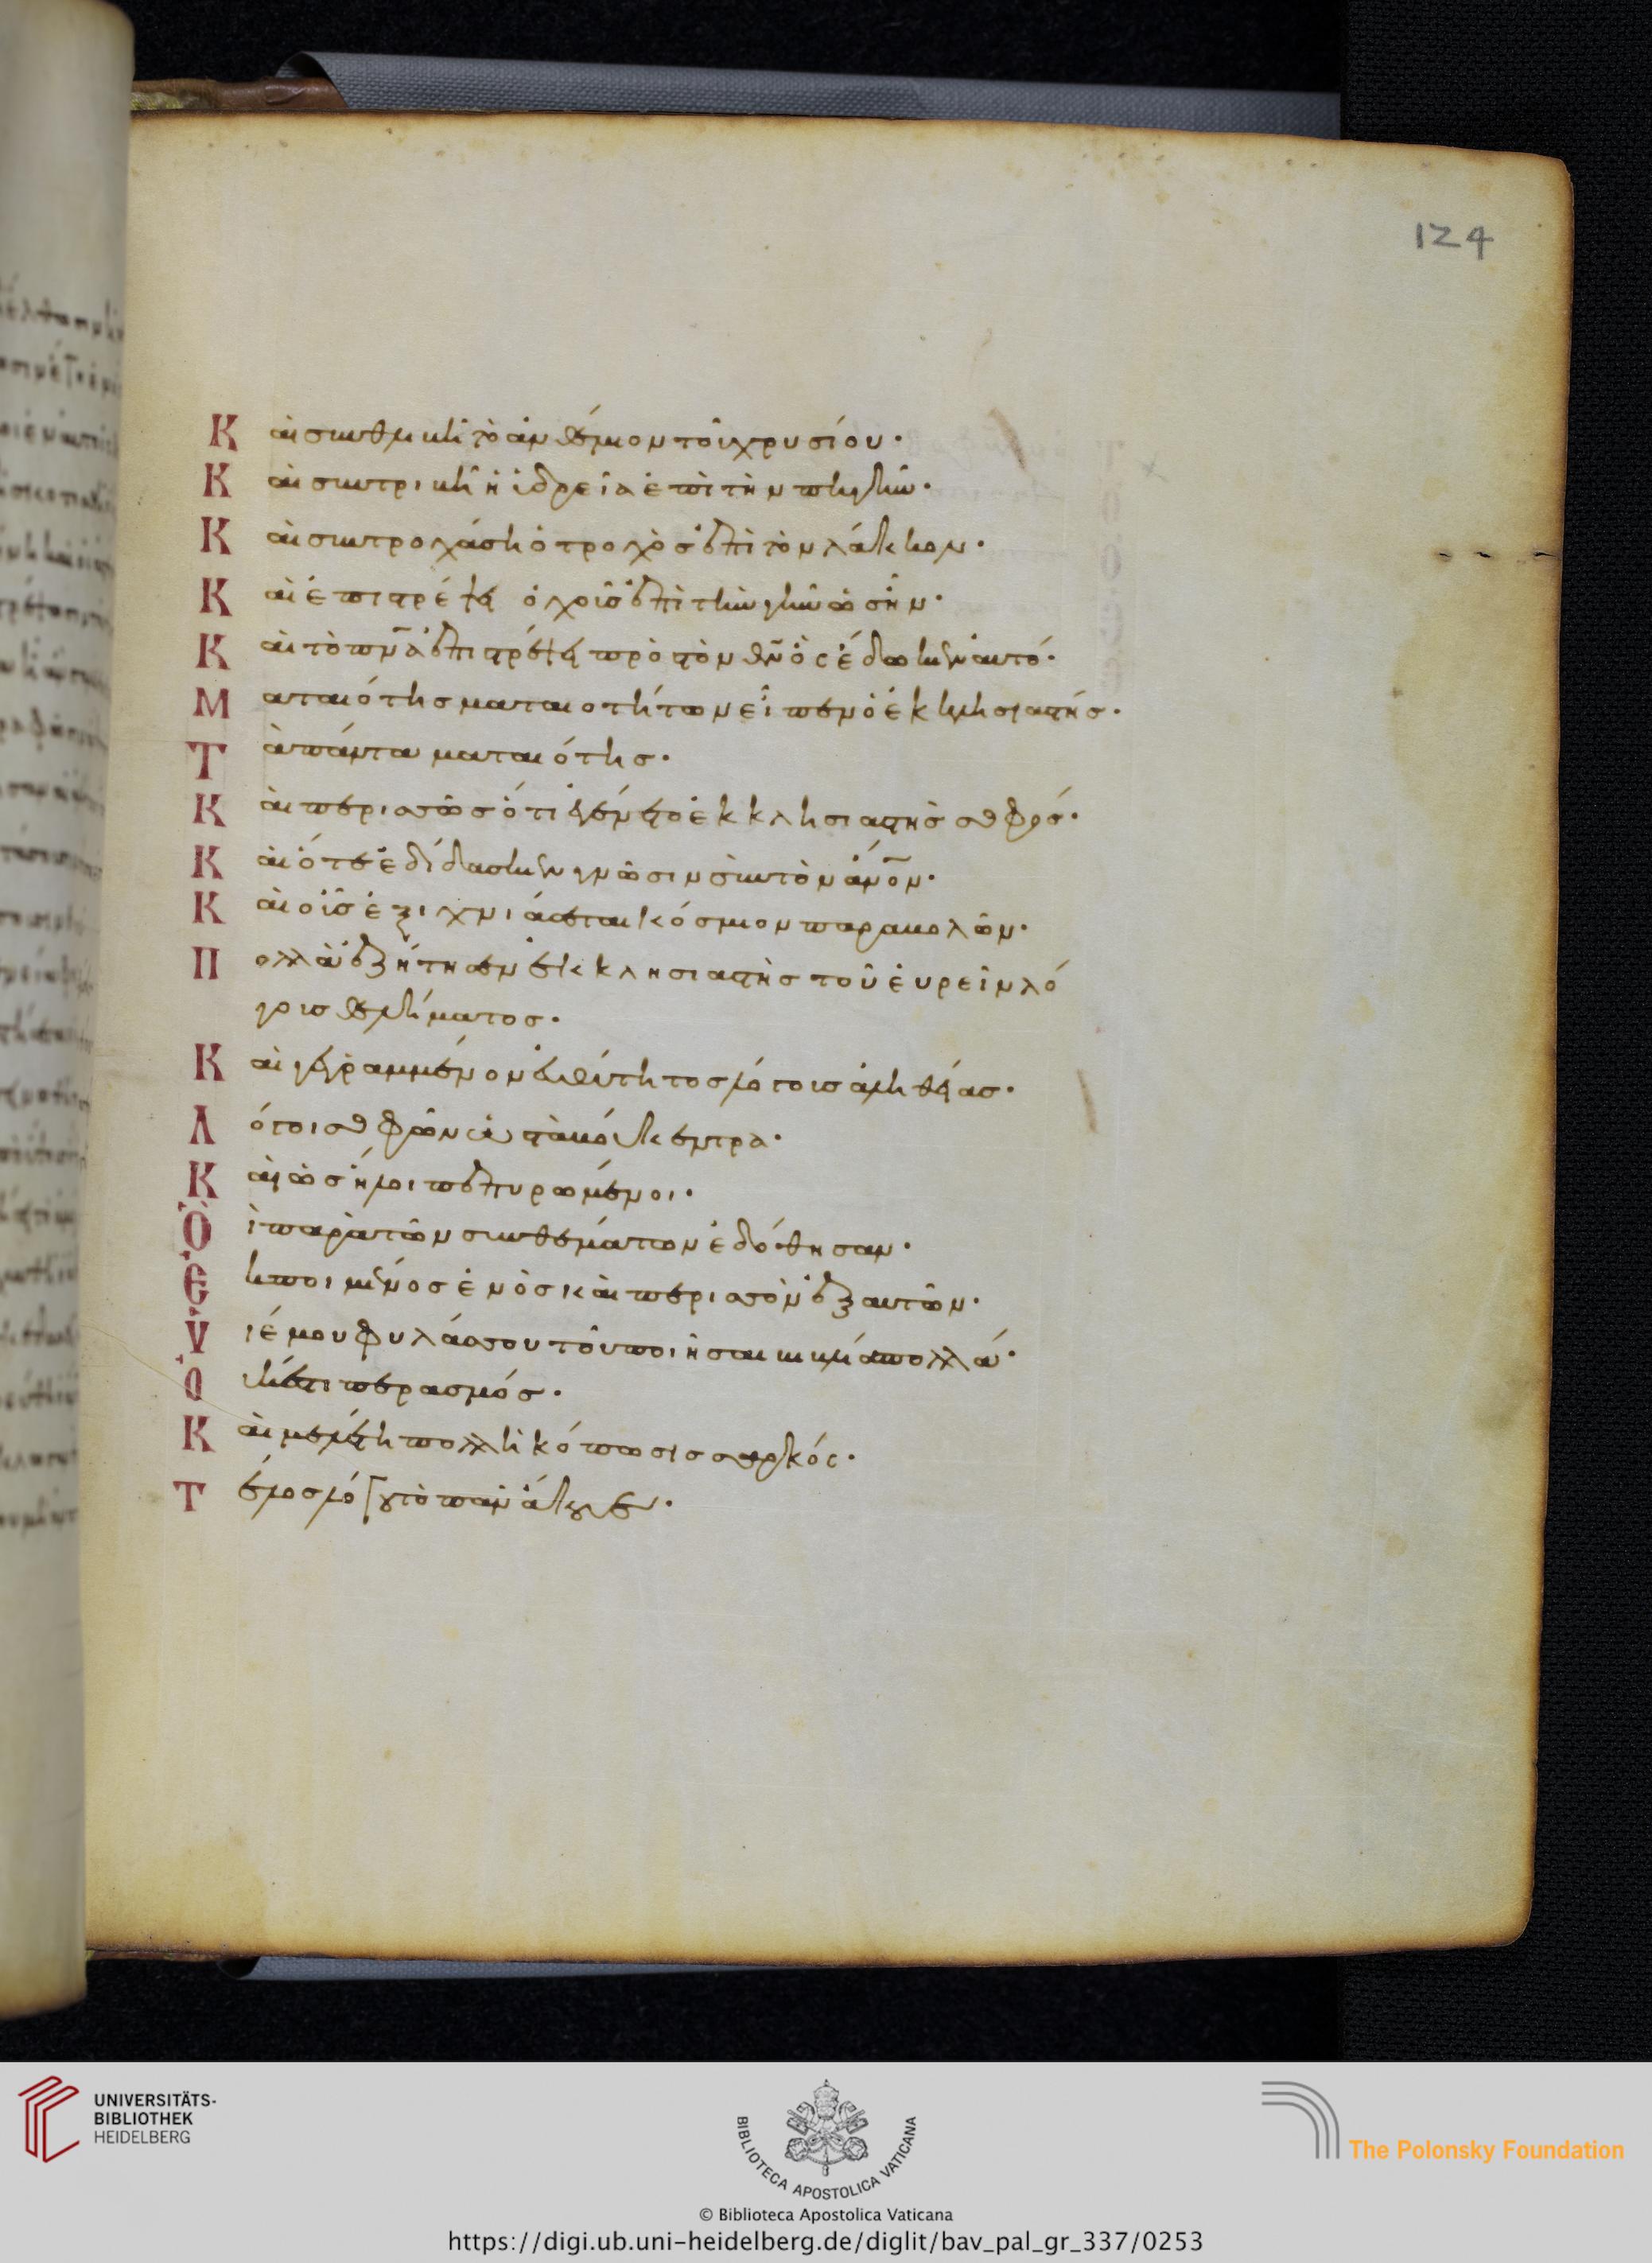 124
Καὶ συνθλιβῆ τὸ ἀνθέμιον τοῦ χρυσίου·
Καὶ συντριβῆ ἡ ὑδρεία ἐπὶ τὴν πηγήν·
Καὶ συντροχάση ὁ τροχὸς ἐπὶ τὸν λάκκον·
Καὶ ἐπιστρέψει ὁ χοῦς ἐπὶ τὴν γῆν ὡς ἦν·
Καὶ τὸ πνα ἐπιστρέψει πρὸς τὸν θν ὃς ἔδωκεν αυτό·
Ματαιότης ματαιοτήτων εἶπεν ὁ ἐκκλησιαστής·
Τὰ πάντα ματαιότης·
Καὶ περισσὸν ὅτι ἐγένετο ἐκκλησιαστὴς σοφός·
Καὶ ὅτε ἐδίδασκεν γνῶσιν σὺν τὸν ἄνον·
Καὶ οὖς ἐξιχνιάσεται κόσμιον παραβολῶν·
Πολλὰ ἐζήτησεν ἐκκλησιαστὴς τοῦ εὑρεῖν λό
γοις θελήματος·
Καὶ γεγραμμένον εὐθύτητος λόγοις ἀληθείας·
Λόγοι σοφῶν ὡς τὰ βούκεντρα·
Καὶ ὡς ἧλοι πεπυρωμένοι·
Οἳ παρὰ τῶν συνθεμάτων ἐδόθησαν·
Ἐκ ποιμένος ἑνὸς καὶ περισσὸν ἐξ αυτῶν·
Υἱέ μου φυλάσσου τοῦ ποιῆσαι βιβλία πολλά·
Οὐκ ἔστι περασμός·
Καὶ μελέτη πολλὴ κόπωσις σαρκός·
Τέλος λόγου τὸ πᾶν ἄκουε·
UNIVERSITÄTS-
BIBLIOTHEK
HEIDELBERG
BIBLIOTECA APOSTOLICA VATICANA
The Polonsky Foundation
© Biblioteca Apostolica Vaticana
https://digi.ub.uni-heidelberg.de/diglit/bav_pal_gr_337/0253